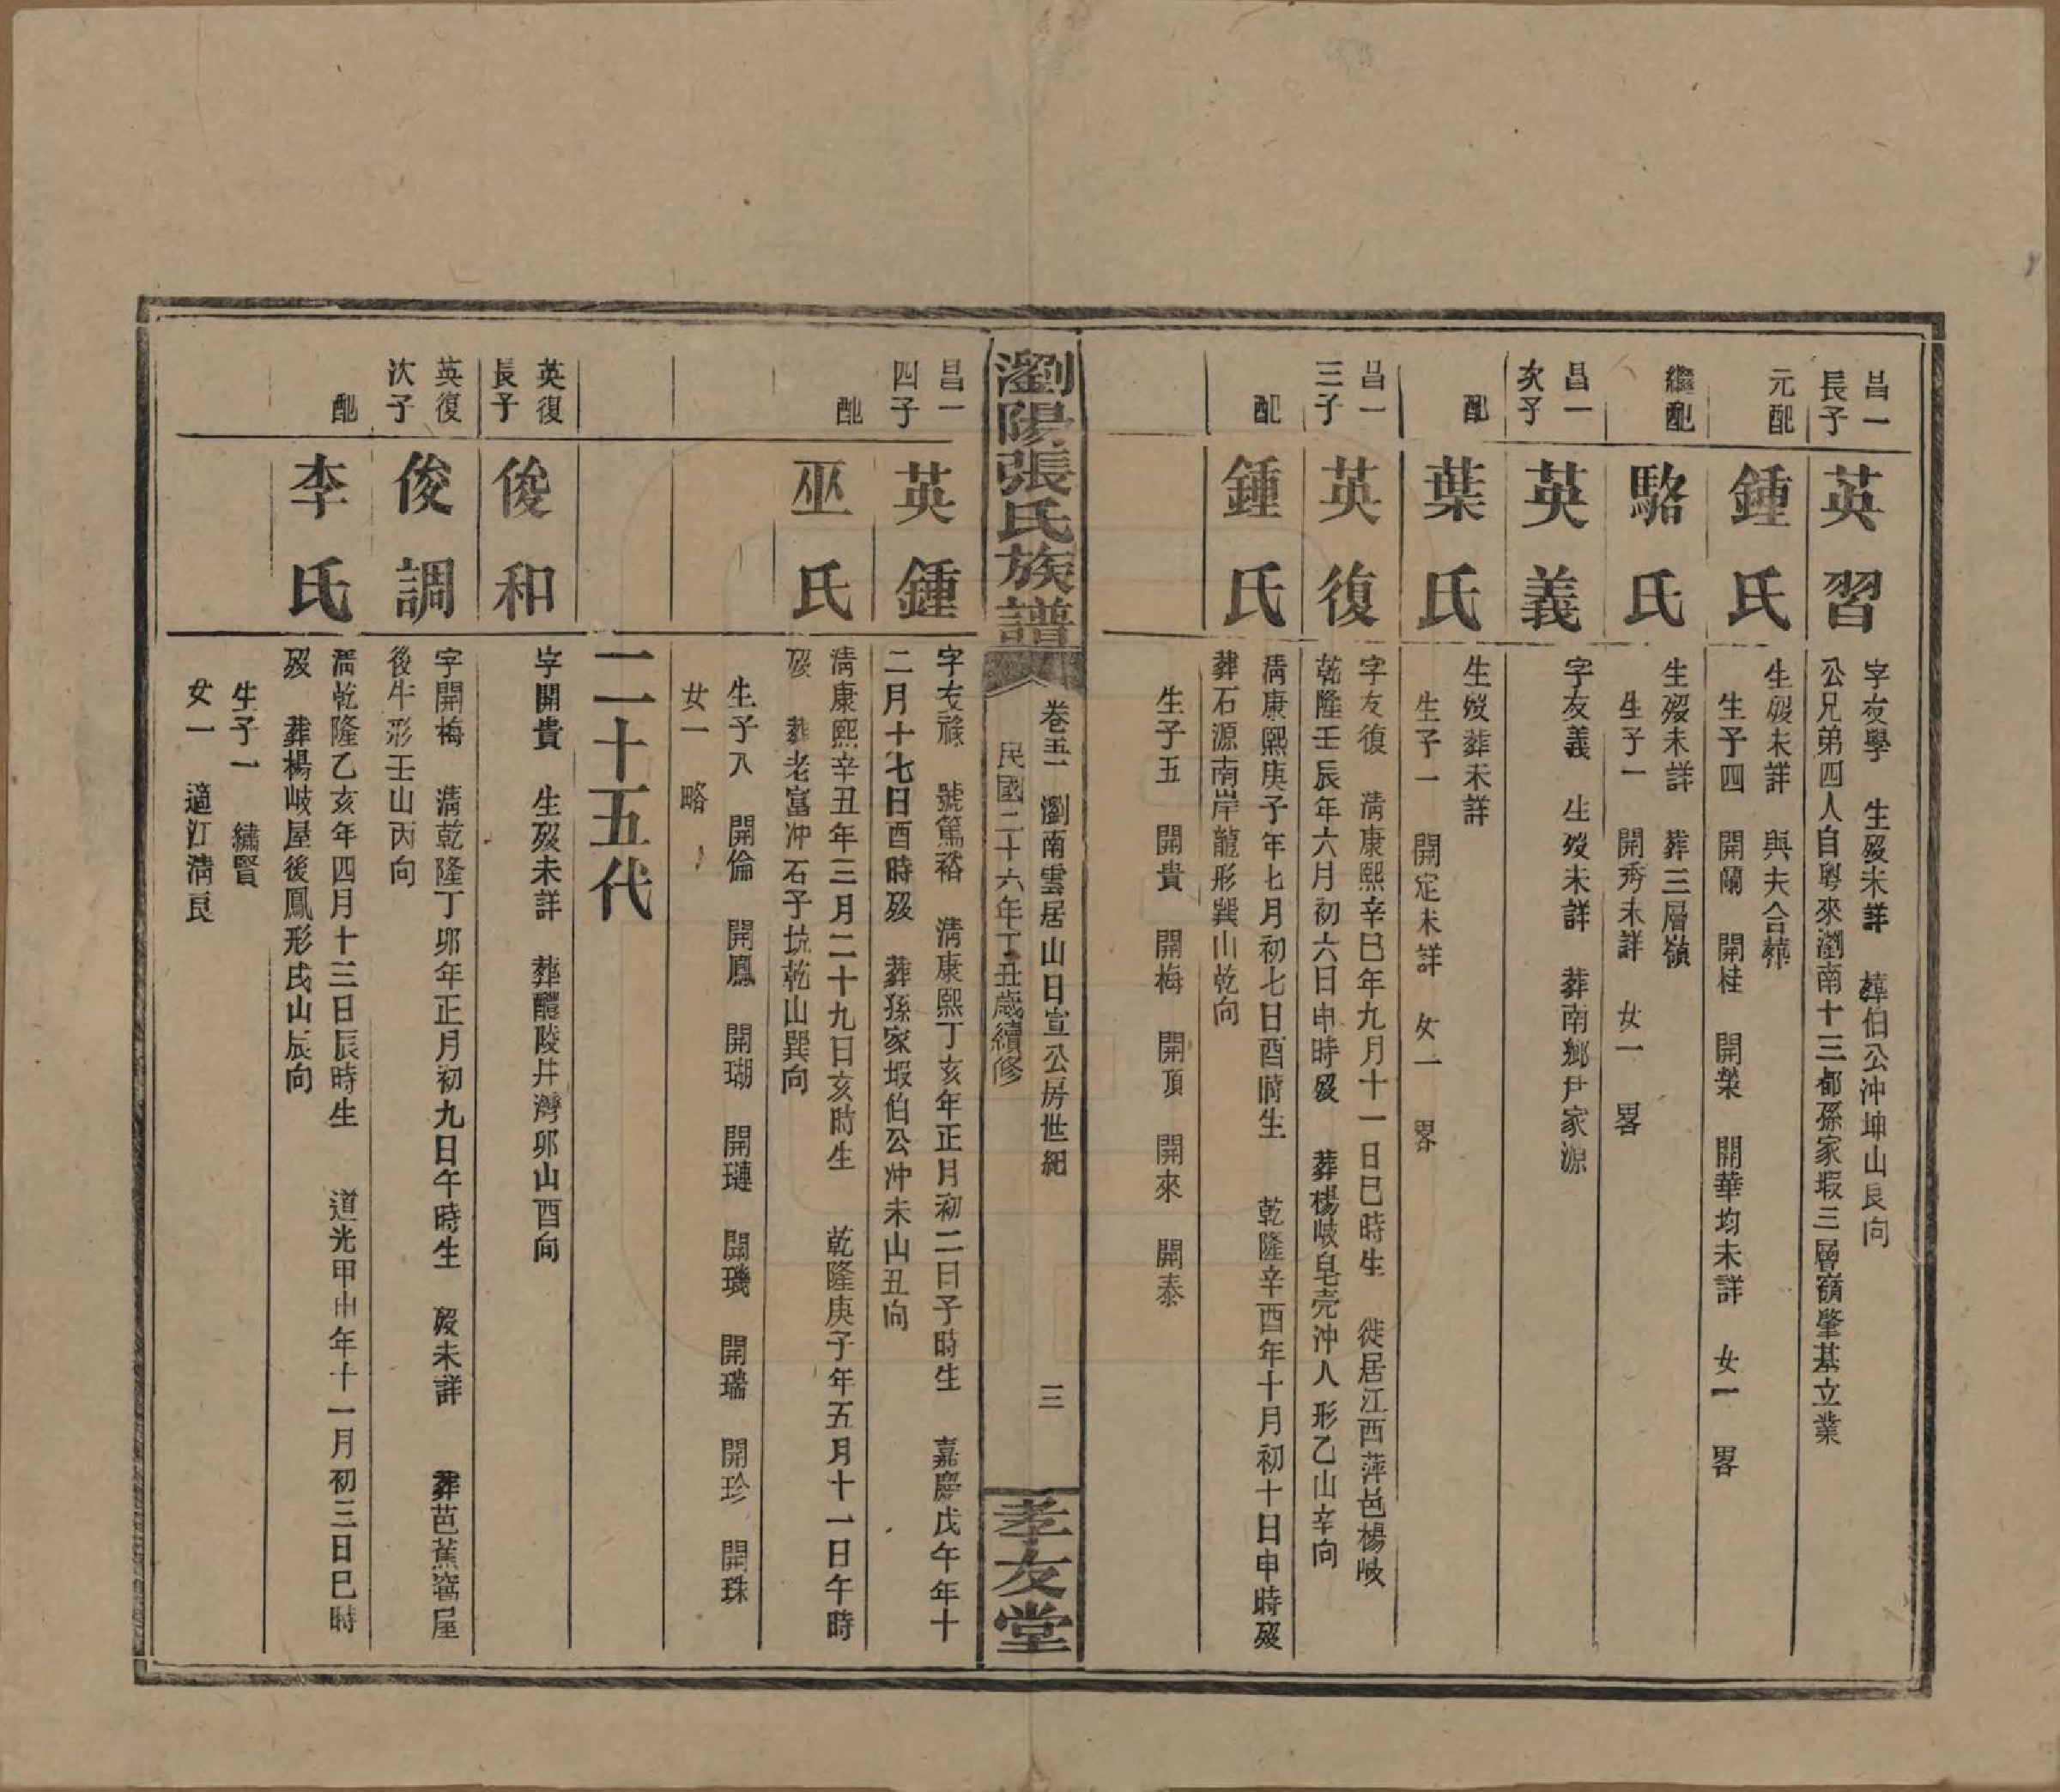 昌一
長子
英習
字友學　生歿未詳　葬伯公沖坤山艮向
公兄弟四人自粵來瀏南十三都孫家塅三層嶺肇基立業
元配
鍾氏
生歿未詳　與夫合葬
生子四　開蘭　開桂　開榮　開華均未詳　女一　畧
繼配
駱氏
生歿未詳　葬三層嶺
生子一　開秀未詳　女一　畧
昌一
次子
英義
字友義　生歿未詳　葬南鄉尹家源
配
葉氏
生歿葬未詳
生子一　開定未詳　女一　畧
昌一
三子
英復
字友復　清康熙辛巳年九月十一日巳時生　徙居江西萍邑楊岐
乾隆壬辰年六月初六日申時歿　葬楊岐皂壳沖人形乙山辛向
配
鍾氏
清康熙庚子年七月初七日酉時生　乾隆辛酉年十月初十日申時歿
葬石源南岸龍形巽山乾向
生子五　開貴　開梅　開頂　開來　開泰
瀏陽張氏族譜
卷五　瀏南雲居山日宣公房世紀　三
民國二十六年丁丑歲續修
孝友堂
昌一
四子
英鍾
字友祿　號篤裕　清康熙丁亥年正月初二日子時生　嘉慶戊午年十
二月十七日酉時歿　葬孫家塅伯公沖未山丑向
配
巫氏
清康熙辛丑年三月二十九日亥時生　乾隆庚子年五月十一日午時
歿　葬老富沖石子坑乾山巽向
生子八　開倫　開鳳　開瑚　開璉　開璣　開瑞　開珍　開珠
女一　略
二十五代
英復
長子
俊和
字開貴　生歿未詳　葬醴陵井灣卯山酉向
英復
次子
俊調
字開梅　清乾隆丁卯年正月初九日午時生　歿未詳　葬芭蕉窩屋
後牛形壬山丙向
配
李氏
清乾隆乙亥年四月十三日辰時生　道光甲申年十一月初三日巳時
歿　葬楊岐屋後鳳形戌山辰向
生子一　繡賢
女一　適江清良